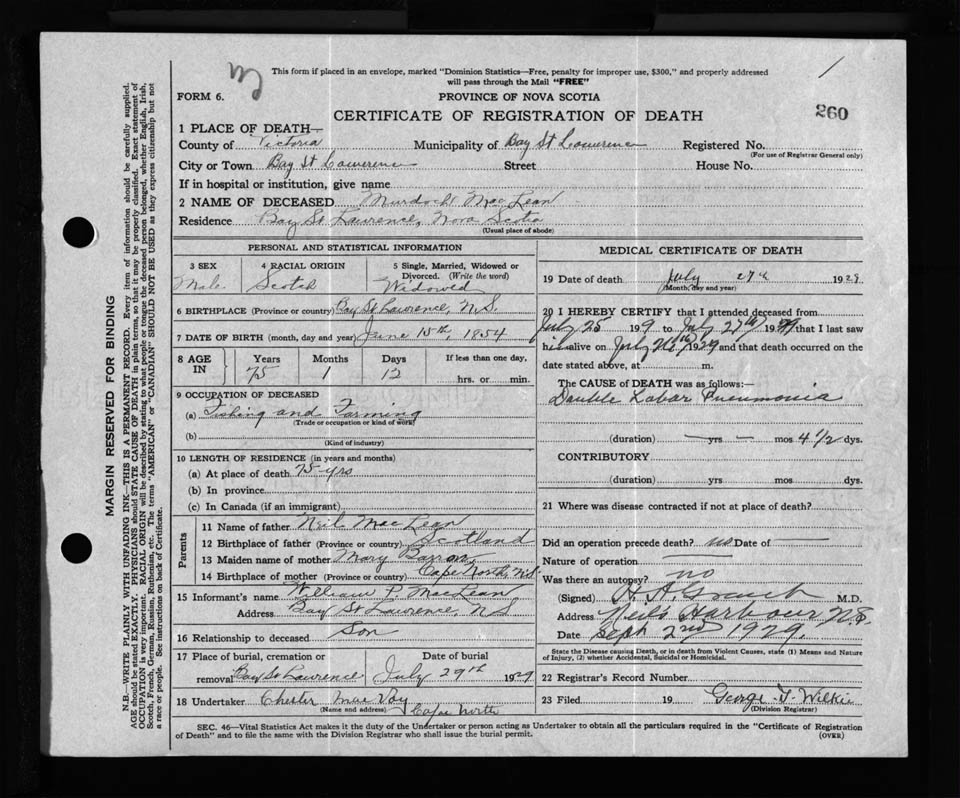 This form if placed in an envelope, marked "Dominion Statistics—Free, penalty for improper use, $300," and properly addressed
will pass through the Mail "FREE"
FORM 6.
PROVINCE OF NOVA SCOTIA
CERTIFICATE OF REGISTRATION OF DEATH
260
1 PLACE OF DEATH—
County of Victoria Municipality of Bay St Lawrence Registered No.
(For use of Registrar General only)
City or Town Bay St Lawrence Street House No.
If in hospital or institution, give name
2 NAME OF DECEASED Murdoch MacLean
Residence Bay St Lawrence, Nova Scotia
(Usual place of abode)
PERSONAL AND STATISTICAL INFORMATION
3 SEX 4 RACIAL ORIGIN 5 Single, Married, Widowed or
Divorced. (Write the word)
Male Scotch Widowed
6 BIRTHPLACE (Province or country) Bay St Lawrence, N.S.
7 DATE OF BIRTH (month, day and year) June 15th, 1854
8 AGE IN Years Months Days If less than one day,
75 1 12 hrs. or min.
9 OCCUPATION OF DECEASED
(a) Fishing and Farming
(Trade or occupation or kind of work)
(b)
(Kind of industry)
10 LENGTH OF RESIDENCE (in years and months)
(a) At place of death 75 yrs
(b) In province
(c) In Canada (if an immigrant)
Parents
11 Name of father Neil MacLean
12 Birthplace of father (Province or country) Scotland
13 Maiden name of mother Mary Barron
14 Birthplace of mother (Province or country) Cape North, N.S.
15 Informant's name William P. MacLean
Address Bay St Lawrence, N S
16 Relationship to deceased Son
17 Place of burial, cremation or Date of burial
removal Bay St Lawrence July 29th 1929
18 Undertaker Chester Mac
(Name and address) Cape North
MEDICAL CERTIFICATE OF DEATH
19 Date of death July 27th 1929
(Month, day and year)
20 I HEREBY CERTIFY that I attended deceased from
July 25 1929 to July 27th 1929 that I last saw
him alive on July 26th 1929 and that death occurred on the
date stated above, at m.
The CAUSE of DEATH was as follows:—
Double Lobar Pneumonia
(duration) — yrs — mos 4 1/2 dys.
CONTRIBUTORY
(duration) yrs mos dys.
21 Where was disease contracted if not at place of death?
Did an operation precede death? no Date of —
Nature of operation
Was there an autopsy? no
(Signed) H A M.D.
Address Neil's Harbour N.S.
Date Sept 2nd 1929.
State the Disease causing Death, or in death from Violent Causes, state (1) Means and Nature
of Injury, (2) whether Accidental, Suicidal or Homicidal.
22 Registrar's Record Number
23 Filed 19 George T. Wilkie
(Division Registrar)
SEC. 46—Vital Statistics Act makes it the duty of the Undertaker or person acting as Undertaker to obtain all the particulars required in the "Certificate of Registration
of Death" and to file the same with the Division Registrar who shall issue the burial permit.
(OVER)
MARGIN RESERVED FOR BINDING
N.B.—WRITE PLAINLY WITH UNFADING INK—THIS IS A PERMANENT RECORD. Every item of information should be carefully supplied.
AGE should be stated EXACTLY. PHYSICIANS should STATE CAUSE OF DEATH in plain terms, so that it may be properly classified. Exact statement of
OCCUPATION is very important. RACIAL ORIGIN will be described by stating to what people or tongue the deceased person belonged, whether English, Irish,
Scotch, French, German, Russian, Ruthenian, etc. The terms "AMERICAN" or "CANADIAN" SHOULD NOT BE USED as they express citizenship but not
a race or people. See instructions on back of Certificate.